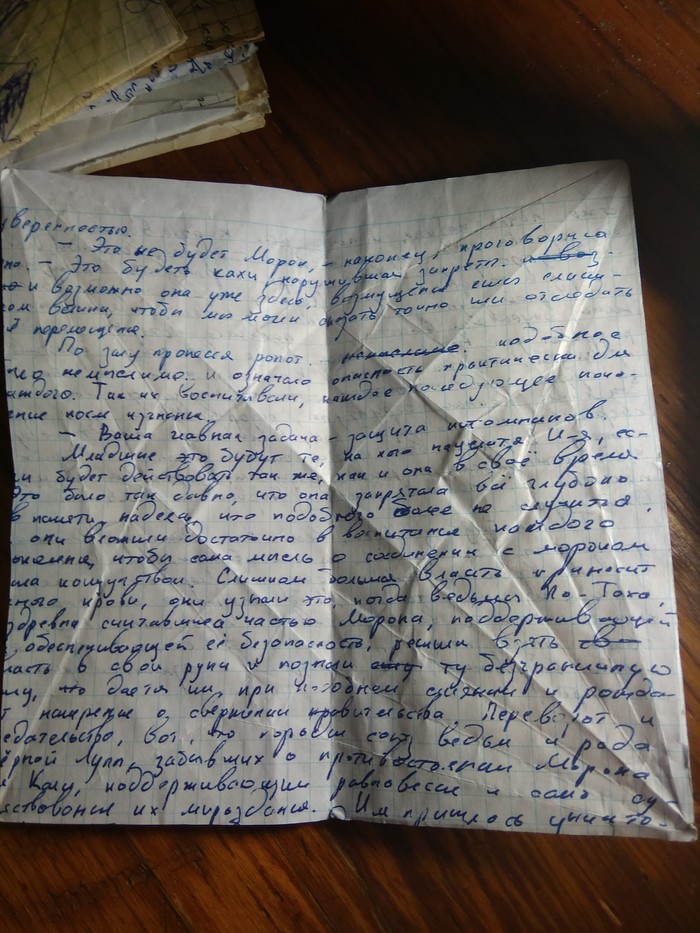 уверенностью.
– Это не будет Морок, – наконец, проговорила
она. – Это будет кахи, нарушившая запреты.
и возможно она уже здесь, возмущения сил слиш-
ком велики, чтобы мы могли сказать точно или отследить
перемещения.
По залу пронёсся ропот. подобное
было немыслимо и означало опасность практически для
каждого. Так их воспитывали, каждое последующее поко-
ление после изгнания.
– Ваша главная задача – защита
Младшие это будут те, на кого нацелятся. И-я, ес-
ли будет действовать так же, как и она в своё время
Это было так давно, что она запрятала всё глубоко
в памяти, надеясь, что подобного более не случится,
они вложили достаточно в воспитание каждого
поколения, чтобы сама мысль о соединении с мороком
была кощунством. Слишком большая власть приносит
много крови, они узнали это, когда ведьмы Но-Тоха,
издревле считавшиеся частью Морока, поддерживающей
и обеспечивающей её безопасность, решили взять
власть в свои руки и познали ту безграничную
силу, что даётся им при подобном слиянии и рожда-
ет намерение о свержении правительства. Переворот и
предательство, вот, что породил союз ведьм и рода
Чёрной Луны, забывших о противостоянии Морока
и Каху, поддерживающим равновесие и само су-
ществование их мироздания. Им пришлось уничто-